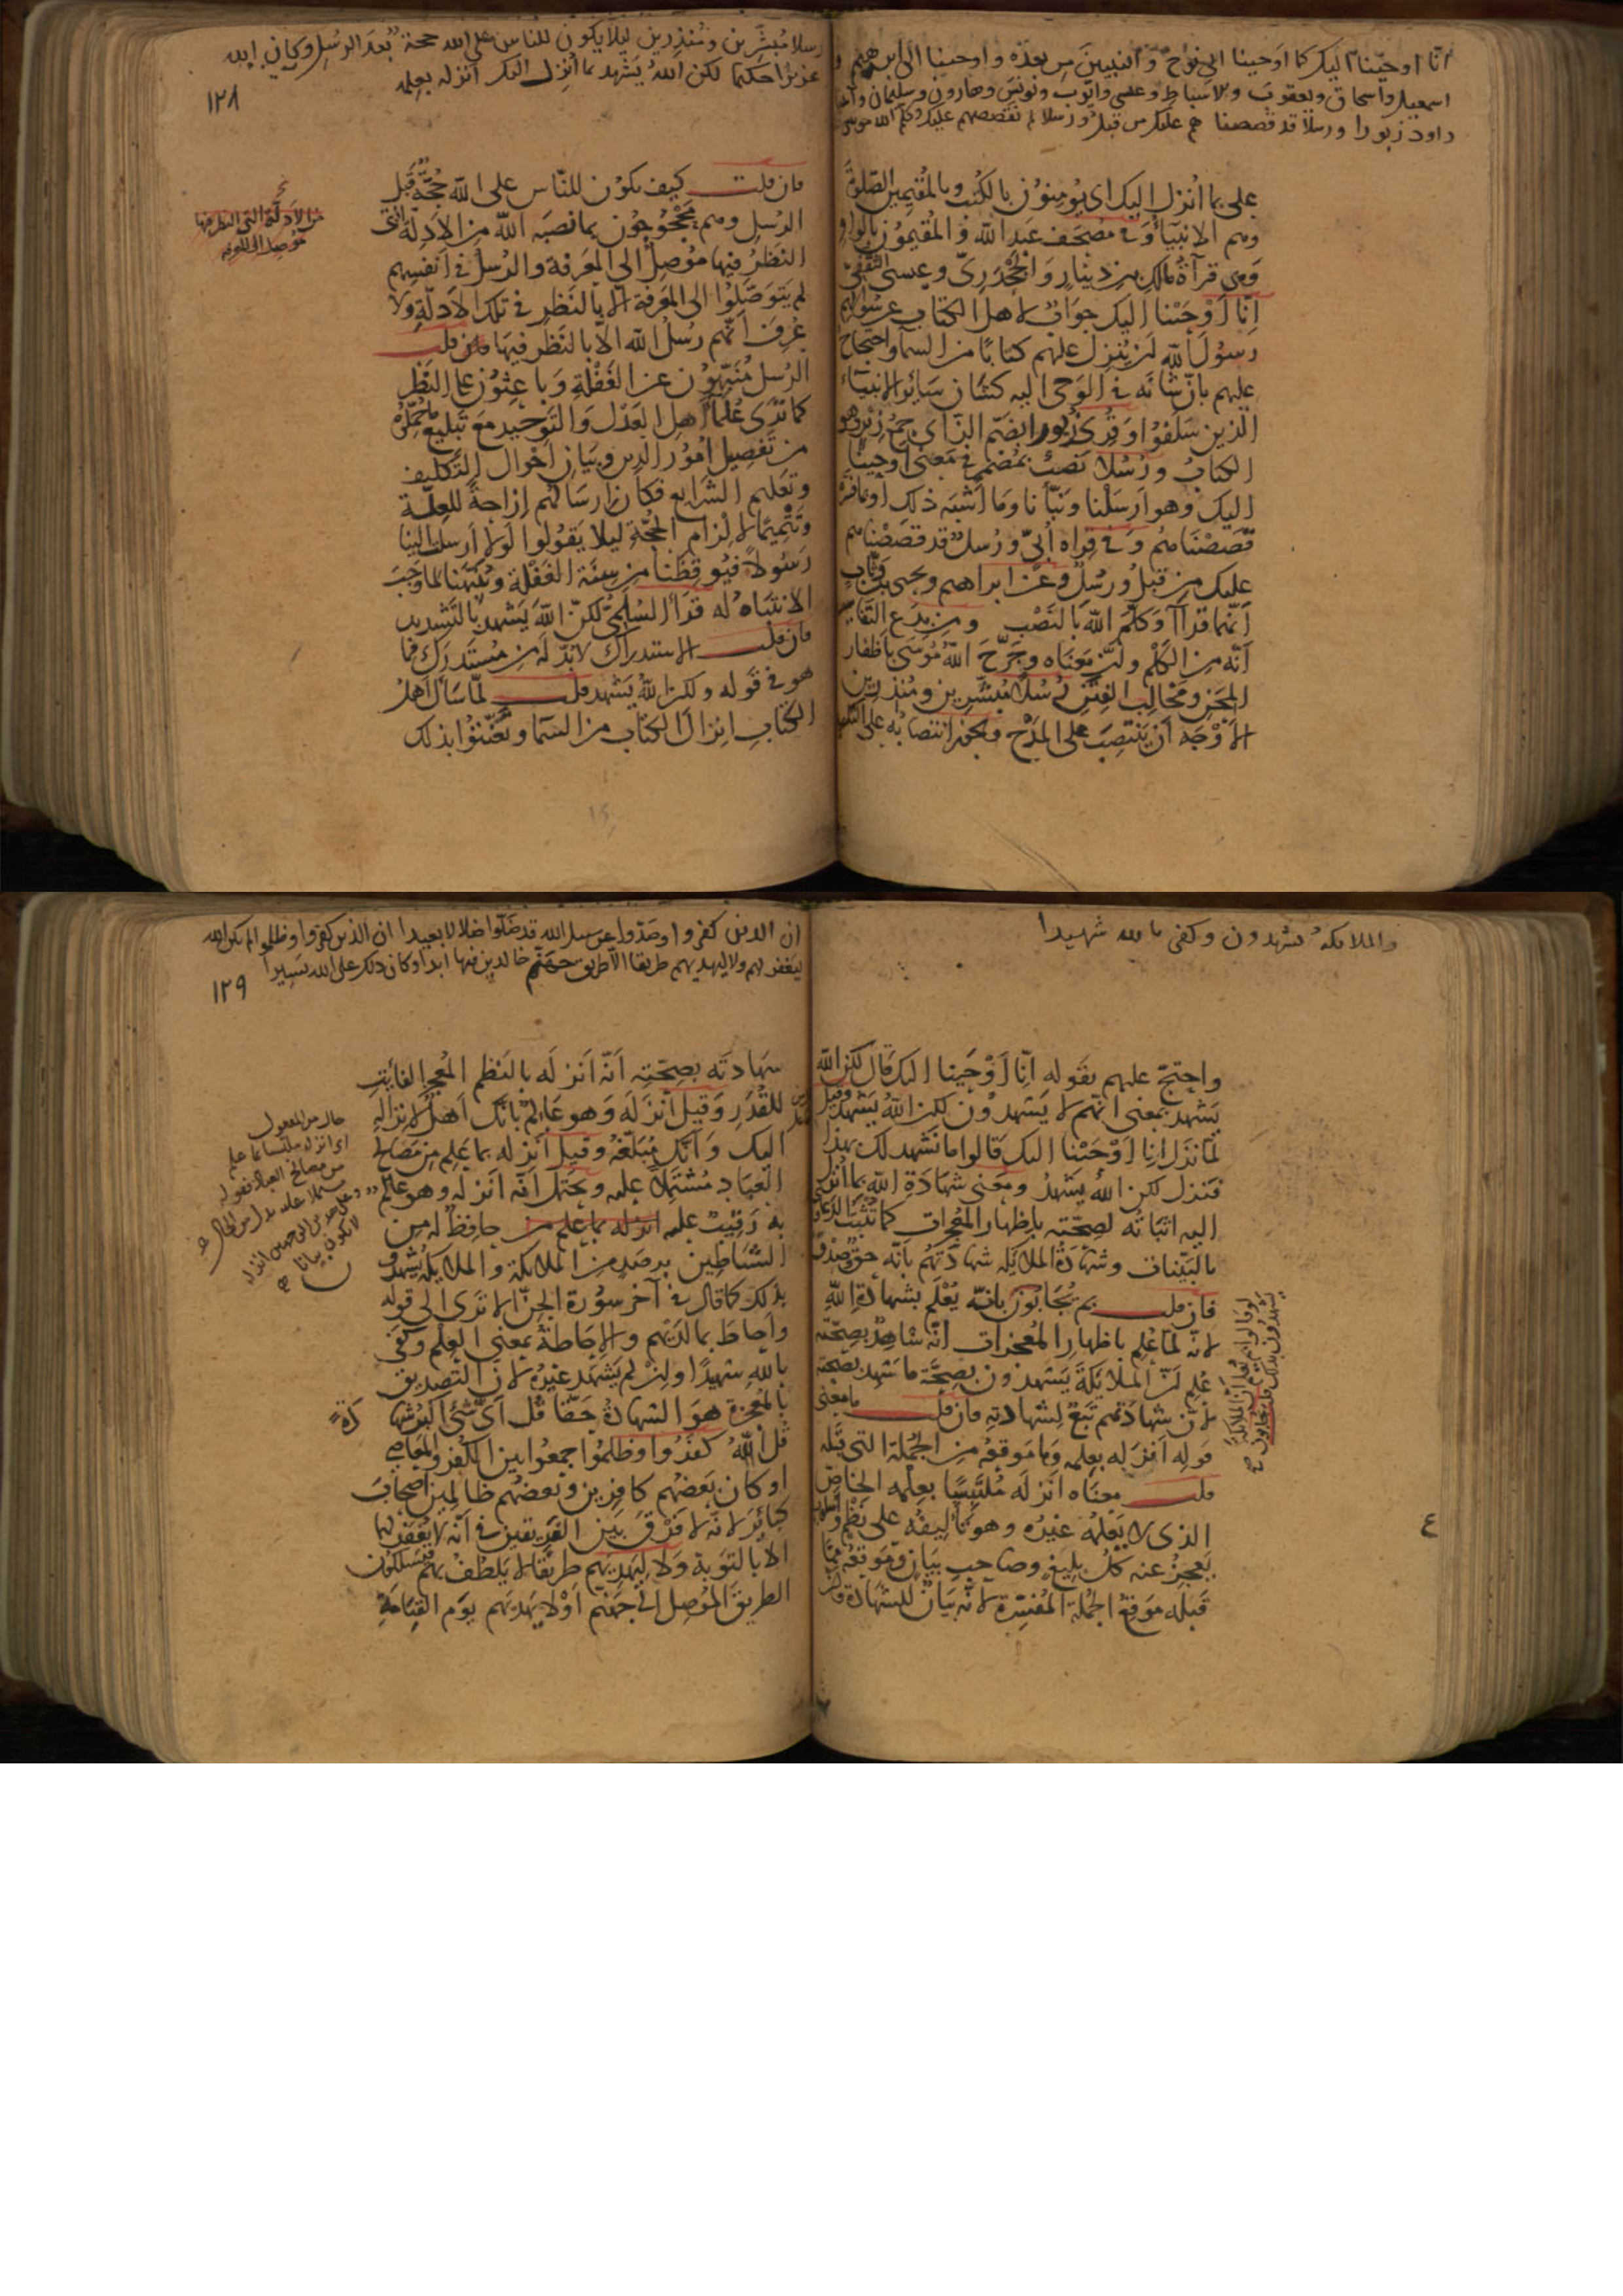 انا اوحينا اليك كما اوحينا الى نوح والنبيين من بعده واوحينا الى ابرهيم و
اسمعيل واسحاق ويعقوب والاسباط وعيسى وايوب ويونس وهارون وسليمان وآتينا
داود زبورا ورسلا قد قصصناهم عليك من قبل ورسلا لم نقصصهم عليك وكلم الله موسى
على بما انزل اليك اى يؤمنون بالكتب وبالمقيمين الصلوة
وهم الانبياء وفى مصحف عبد الله والمقيمون بالواو
وهى قراءة مالك بن دينار والجحدرى وعيسى الثقفى
انا اوحينا اليك جواب لاهل الكتاب عن سؤالهم
رسول الله ان ينزل عليهم كتابا من السماء واحتجاج
عليهم بان شانه فى الوحى اليه كشان سائر الانبياء
الذين سلفوا وقرئ زبورا بضم الزاى جمع زبر وهو
الكتاب ورسلا نصب بمضمر فى معنى اوحينا
اليك وهو ارسلنا ونبأنا وما اشبه ذلك او بما فسره
قصصناهم وفى قراءة ابى ورسل قد قصصناهم
عليك من قبل ورسل وعن ابراهيم ويحيى بن وثاب
انهما قرآ وكلم الله بالنصب ومن بدع التفاسير
انه من الكلم وان معناه وجرح الله موسى باظفار
المحن ومخالب الفتن رسلا مبشرين ومنذرين
الاوجه ان ينتصب على المدح ويجوز انتصابه على التكرير
رسلا مبشرين ومنذرين ليلا يكون للناس على الله حجة بعد الرسل وكان الله
عزيزا حكيما لكن الله يشهد بما انزل اليك انزله بعلمه
١٢٨
فان قلت كيف يكون للناس على الله حجة قبل
الرسل وهم محجوجون بما نصبه الله من الادلة التى
النظر فيها موصل الى المعرفة والرسل فى انفسهم
لم يتوصلوا الى المعرفة الا بالنظر فى تلك الادلة ولا
عرف انهم رسل الله الا بالنظر فيها قلت
الرسل منبهون عن الغفلة وباعثون على النظر
كما ترى علماء اهل العدل والتوحيد مع تبليغ ما حملوه
من تفصيل امور الدين وبيان احوال التكليف
وتعليم الشرايع فكان ارسالهم ازاحة للعلة
وتتميما لالزام الحجة ليلا يقولوا لولا ارسلت الينا
رسولا فيوقظنا من سنة الغفلة وينبهنا لما وجب
الانتباه له قرأ السلمى لكن الله يشهد بالتشديد
فان قلت الاستدراك لا بد له من مستدرك فما
هو فى قوله ولكن الله يشهد قلت لما سأل اهل
الكتاب انزال الكتاب من السماء وتعنتوا بذلك
من الادلة التى النظر فيها
موصل الى المعرفة
والملائكة يشهدون وكفى بالله شهيدا
واحتج عليهم بقوله انا اوحينا اليك قال لكن الله
يشهد بمعنى انهم لا يشهدون لكن الله يشهد وقيل
لما نزل انا اوحينا اليك قالوا ما نشهد لك بهذا
فنزل لكن الله يشهد ومعنى شهادة الله بما انزل
اليه اثباته لصحته باظهار المعجزات كما تثبت الدعاوى
بالبينات وشهادة الملائكة شهادتهم بانه حق وصدق
فان قلت بم يجابون بانه يعلم بشهادة الله
لانه لما علم باظهار المعجزات انه شاهد بصحته
علم ان الملائكة يشهدون بصحة ما شهد بصحته
لان شهادتهم تبع لشهادته فان قلت ما معنى
قوله انزله بعلمه وما موقعه من الجملة التى قبله
قلت معناه انزله ملتبسا بعلمه الخاص
الذى لا يعلمه غيره وهو تاليفه على نظم واسلوب
يعجز عنه كل بليغ وصاحب بيان وموقعه مما
قبله موقع الجملة المفسرة لانه بيان للشهادة وان
ع
ان الذين كفروا وصدوا عن سبيل الله قد ضلوا ضلالا بعيدا ان الذين كفروا وظلموا لم يكن الله
ليغفر لهم ولا ليهديهم طريقا الا طريق جهنم خالدين فيها ابدا وكان ذلك على الله يسيرا
١٢٩
شهادته بصحته انه انزله بالنظم المعجز الفايت
للقدر وقيل انزله وهو عالم بانك اهل لانزاله
اليك وانك مبلغه وقيل انزله بما علم من مصالح
العباد مشتملا عليه ويحتمل انه انزله وهو عالم
به رقيب عليه حافظ له من
الشياطين برصد من الملائكة والملائكة يشهدون
بذلك كما قال فى آخر سورة الجن الا ترى الى قوله
واحاط بما لديهم والاحاطة بمعنى العلم وكفى
بالله شهيدا وان لم يشهد غيره لان التصديق
بالمعجزة هو الشهادة حقا قل اى شئ اكبر شهادة
قل الله كفروا وظلموا جمعوا بين الكفر والمعاصى
او كان بعضهم كافرين وبعضهم ظالمين اصحاب
كبائر لانه لا فرق بين الفريقين فى انه لا يغفر لهما
الا بالتوبة ولا ليهديهم طريقا لا يلطف بهم فيسلكون
الطريق الموصل الى جهنم او لا يهديهم يوم القيامة
حال من المفعول
اى انزله ملتبسا بما علم
من مصالح العباد فقوله